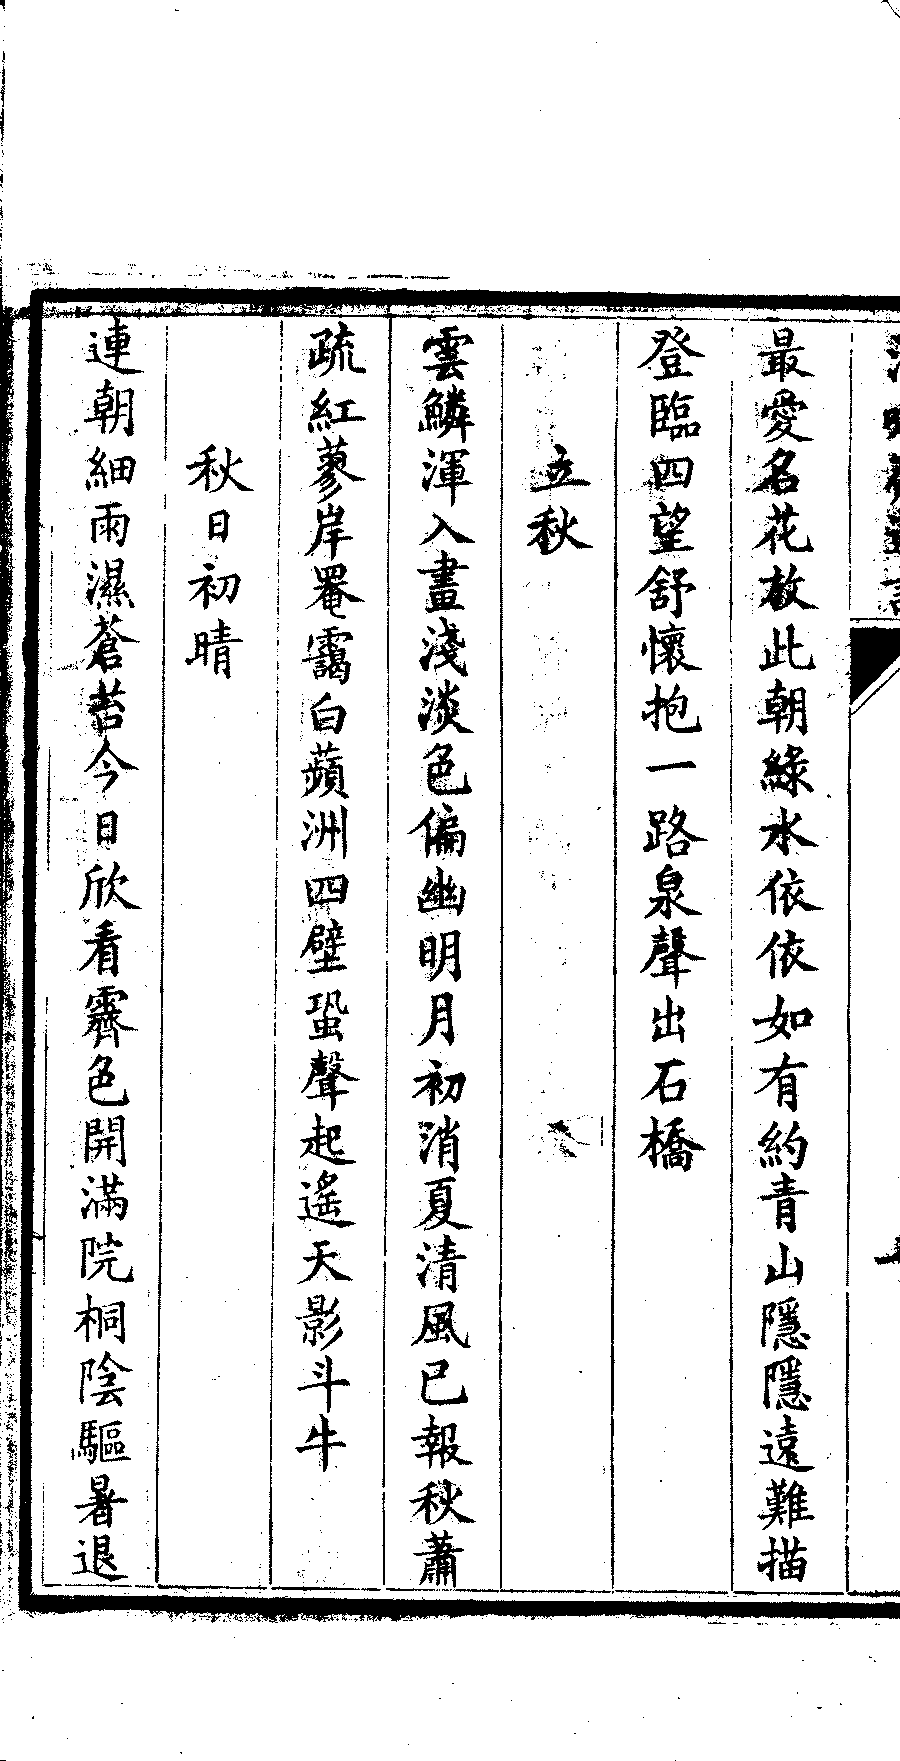 最愛名花放此朝綠水依依如有約青山隱隱遠難描
登臨四望舒懷抱一路泉聲出石橋
立秋
雲鱗渾入畫淺淡色偏幽明月初消夏清風已報秋蕭
疏紅蓼岸罨靄白蘋洲四壁蛩聲起遙天影斗牛
秋日初晴
連朝細雨濕蒼苔今日欣看霽色開滿院桐陰驅暑退